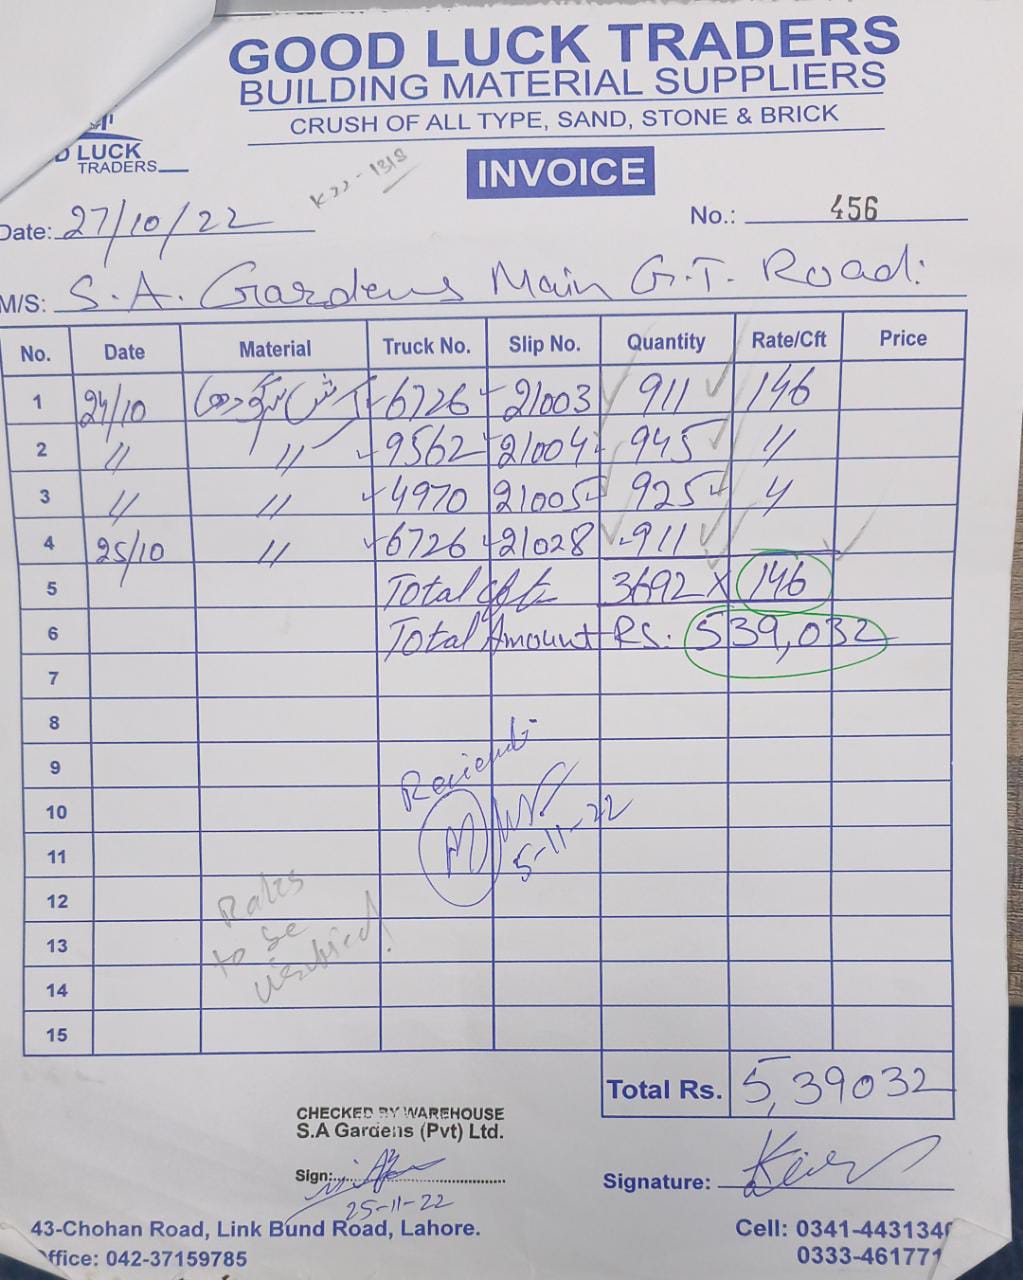 GOOD LUCK TRADERS
BUILDING MATERIAL SUPPLIERS
CRUSH OF ALL TYPE, SAND, STONE & BRICK
D LUCK
TRADERS
INVOICE
K22-1318
Date: 27/10/22 No.: 456
M/S: S.A. Gardens Main G.T. Road.
No. Date Material Truck No. Slip No. Quantity Rate/Cft Price
1 24/10 کرش 6726 21003 911 146
2 〃 〃 9562 21004 945 〃
3 〃 〃 4970 21005 925 〃
4 25/10 〃 6726 21028 911
5 Total cft 3692 X 146
6 Total Amount RS: 539,032
7
8
9
10
11
12
13
14
15
5-11-22
Rates
to be
verified!
Total Rs. 5,39032
CHECKED BY WAREHOUSE
S.A Gardens (Pvt) Ltd.
Sign:
25-11-22
Signature:
43-Chohan Road, Link Bund Road, Lahore. Cell: 0341-443134
ffice: 042-37159785 0333-461771